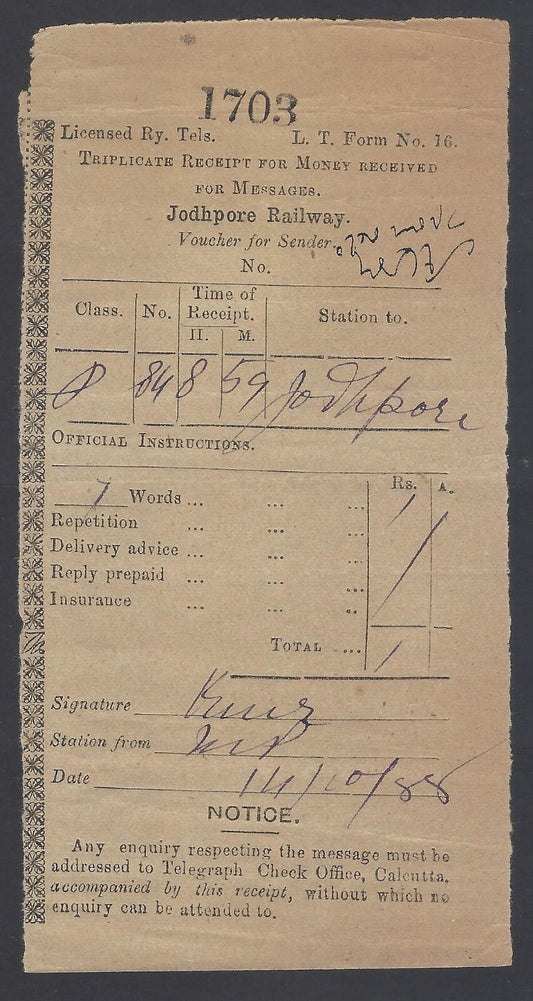 1703
Licensed Ry. Tels. L. T. Form No. 16.
TRIPLICATE RECEIPT FOR MONEY RECEIVED
FOR MESSAGES.
Jodhpore Railway.
Voucher for Sender.
No.
Class. No. Time of Receipt. H. M. Station to.
84 8 59 Jodhpore
OFFICIAL INSTRUCTIONS.
Rs. A.
7 Words ... ... 1
Repetition ... ...
Delivery advice ... ...
Reply prepaid ... ...
Insurance ... ...
TOTAL ... 1
Signature
Station from
Date 14/10/88
NOTICE.
Any enquiry respecting the message must be
addressed to Telegraph Check Office, Calcutta,
accompanied by this receipt, without which no
enquiry can be attended to.